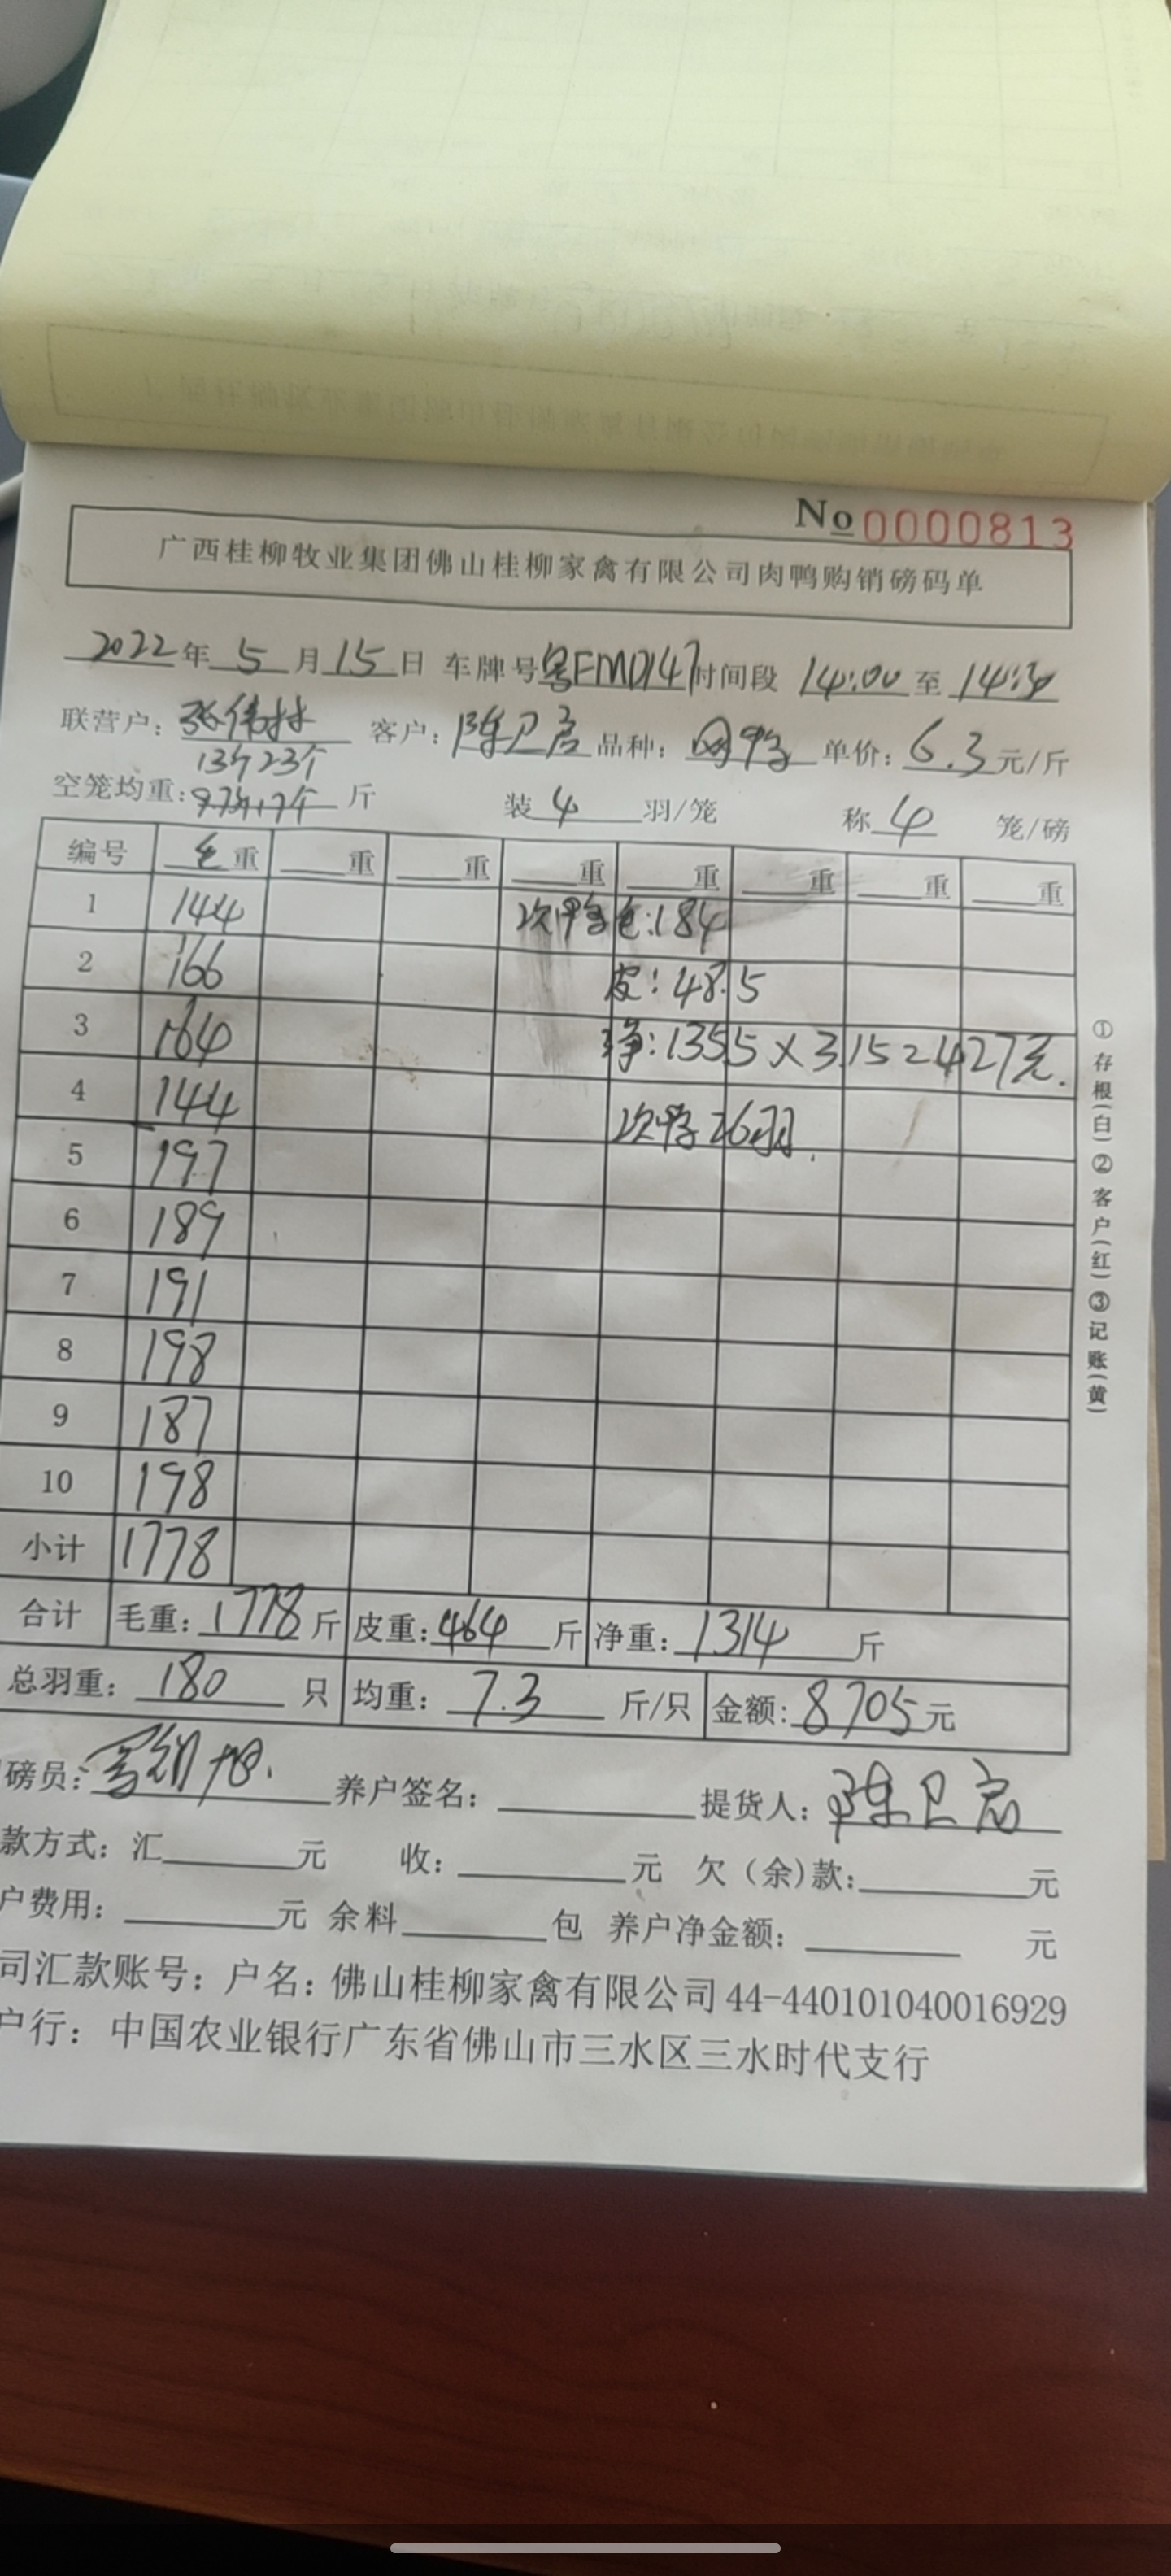 No 0000813
广西桂柳牧业集团佛山桂柳家禽有限公司肉鸭购销磅码单
2022年 5 月 15 日 车牌号 粤FMD147 时间段 14:00 至 14:30
联营户: 张伟林 客户: 陈卫启 品种: 网鸭 单价: 6.3 元/斤
13斤23个
空笼均重: 斤 装 4 羽/笼 称 4 笼/磅
编号 毛重 重 重 重 重 重 重 重
1 144 次鸭毛:184
2 166 皮:48.5
3 164 净:135.5×3.15=427元.
4 144 次鸭26羽.
5 197
6 189
7 191
8 198
9 187
10 198
小计 1778
合计 毛重: 1778 斤 皮重: 464 斤 净重: 1314 斤
总羽重: 180 只 均重: 7.3 斤/只 金额: 8705 元
磅员: 养户签名: 提货人: 陈卫启
款方式: 汇 元 收: 元 欠(余)款: 元
户费用: 元 余料 包 养户净金额: 元
司汇款账号: 户名: 佛山桂柳家禽有限公司 44-440101040016929
户行: 中国农业银行广东省佛山市三水区三水时代支行
①存根(白)②客户(红)③记账(黄)